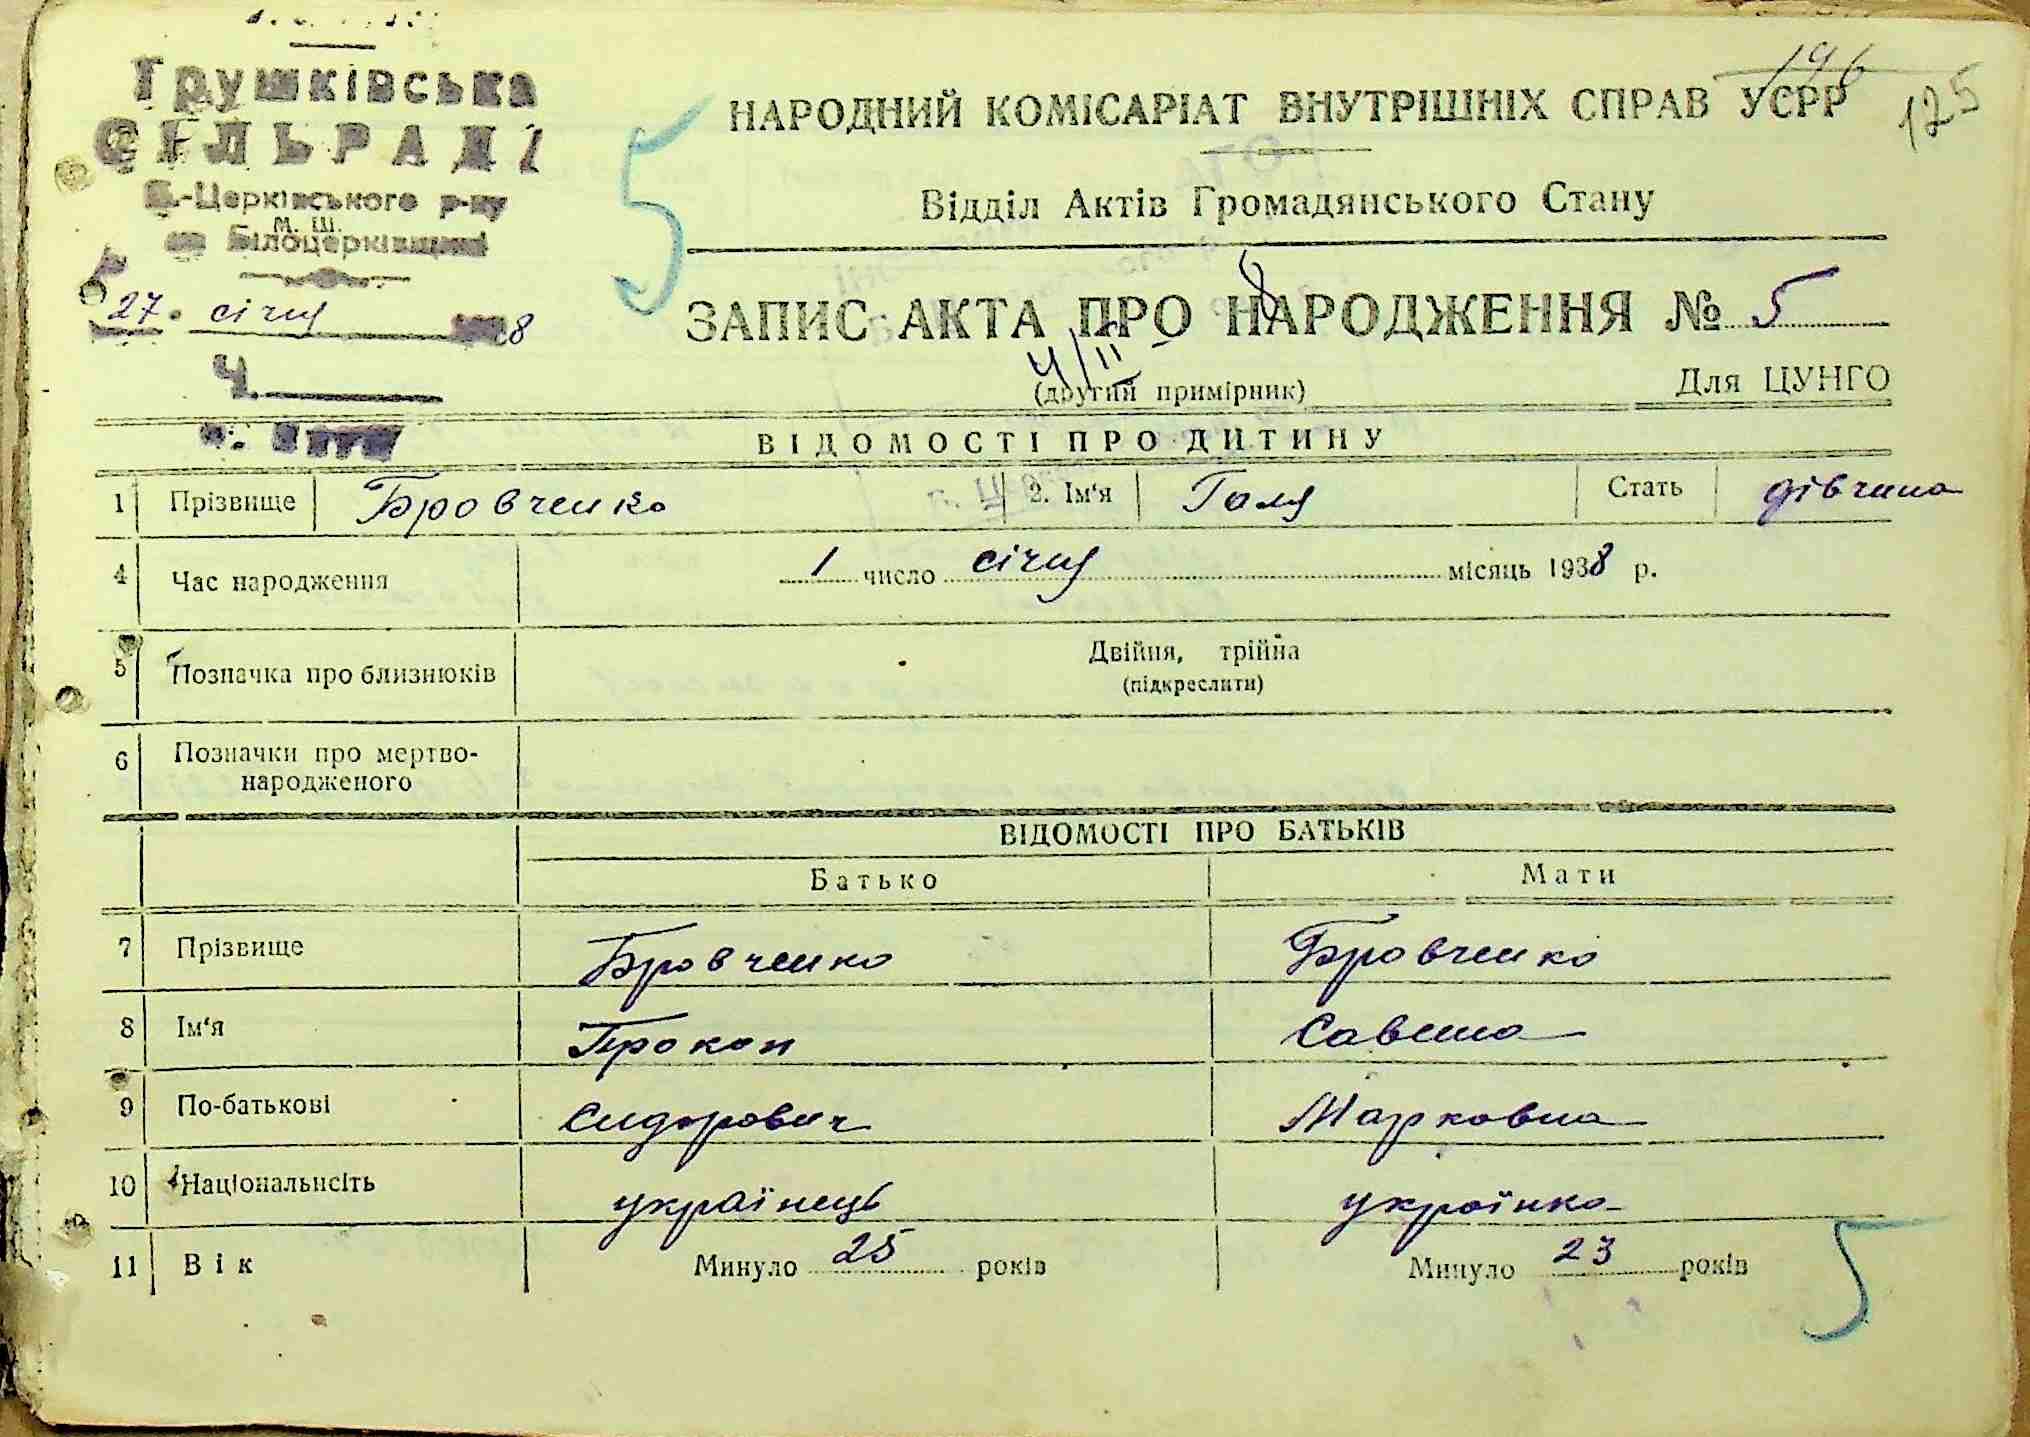 Грушківська
СІЛЬРАДА
Б.-Церківського р-ну
М. Ш.
на Білоцерківщині
27. січня 8
Ч.
196
125
5
НАРОДНИЙ КОМІСАРІАТ ВНУТРІШНІХ СПРАВ УСРР
Відділ Актів Громадянського Стану
ЗАПИС АКТА ПРО НАРОДЖЕННЯ № 5
4/II
(другий примірник)
Для ЦУНГО
ВІДОМОСТІ ПРО ДИТИНУ
1 Прізвище Бровченко 2. Ім'я Галя Стать дівчина
4 Час народження 1 число січня місяць 1938 р.
5 Позначка про близнюків Двійня, трійня
(підкреслити)
6 Позначки про мертво-
народженого
ВІДОМОСТІ ПРО БАТЬКІВ
Батько Мати
7 Прізвище Бровченко Бровченко
8 Ім'я Прокоп Савина
9 По-батькові Сидорович Марковна
10 Національність українець українка
11 Вік Минуло 25 років Минуло 23 років
5